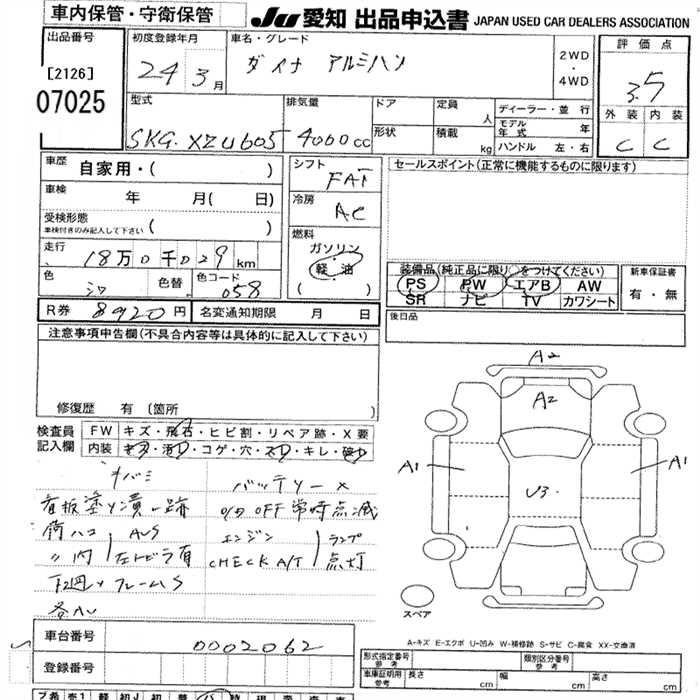 車内保管・守衛保管
JU 愛知 出品申込書 JAPAN USED CAR DEALERS ASSOCIATION
出品番号
[2126]
07025
初度登録年月
24 3月
車名・グレード
ダイナ アルミバン
2WD
・
4WD
評価点
3.5
外装 内装
C C
型式
SKG. XZU605
排気量
4000cc
ドア
形状
定員 人
積載 kg
ディーラー・並行
モデル年式 年
ハンドル 左・右
車歴 自家用・( )
車検 年 月( 日)
受検形態
車検付きのみ記入して下さい ( )
走行 18万0千029km
色 シロ 色替 色コード 058
シフト FAT
冷房 AC
燃料
ガソリン
・
軽・油
( )
セールスポイント(正常に機能するものに限ります)
装備品(純正品に限り○をつけてください)
PS PW エアB AW
SR ナビ TV カワシート
新車保証書
有・無
後日品
R券 8920円 名変通知期限 月 日
注意事項申告欄(不具合内容等は具体的に記入して下さい)
修復歴 有 (箇所 )
検査員記入欄
FW キズ・飛石・ヒビ割・リペア跡・X要
内装 キズ・汚D・コゲ・穴・スD・キレ・破D
バッテリー×
看板塗り潰し跡 O/D OFF常時点滅
荷ハコ AUS エンジン ランプ
〃内 左トビラ有 CHECK A/T 点灯
下廻りフレームS
各AU
A2
A2
A1
A1
U3
スペア
車台番号 0002062
登録番号
A-キズ E-エクボ U-凹み W-補修跡 S-サビ C-腐食 XX-交換済
形式指定番号 参考
類別区分番号 参考
車庫証明用 参考 長さ cm 幅 cm 高さ cm